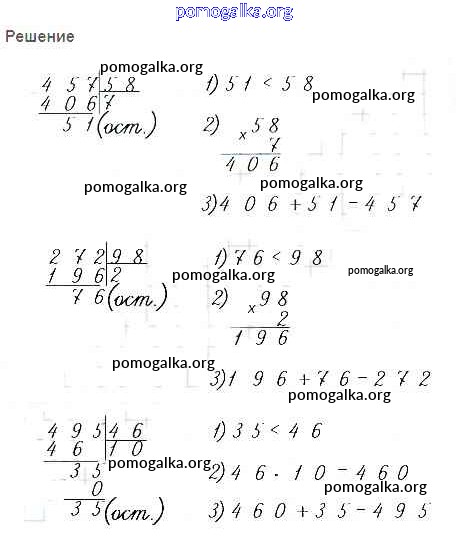 pomogalka.org
Решение
pomogalka.org
4 5 7 5 8
4 0 6 7
5 1 (ост.)
1) 5 1 < 5 8
pomogalka.org
2) × 5 8
7
4 0 6
pomogalka.org
pomogalka.org
3) 4 0 6 + 5 1 - 4 5 7
2 7 2 9 8
1 9 6 2
7 6 (ост.)
1) 7 6 < 9 8
pomogalka.org
pomogalka.org
2) × 9 8
2
1 9 6
pomogalka.org
3) 1 9 6 + 7 6 - 2 7 2
pomogalka.org
4 9 5 4 6
4 6 1 0
3 5
0
3 5 (ост.)
1) 3 5 < 4 6
pomogalka.org
2) 4 6 · 1 0 - 4 6 0
pomogalka.org
3) 4 6 0 + 3 5 - 4 9 5